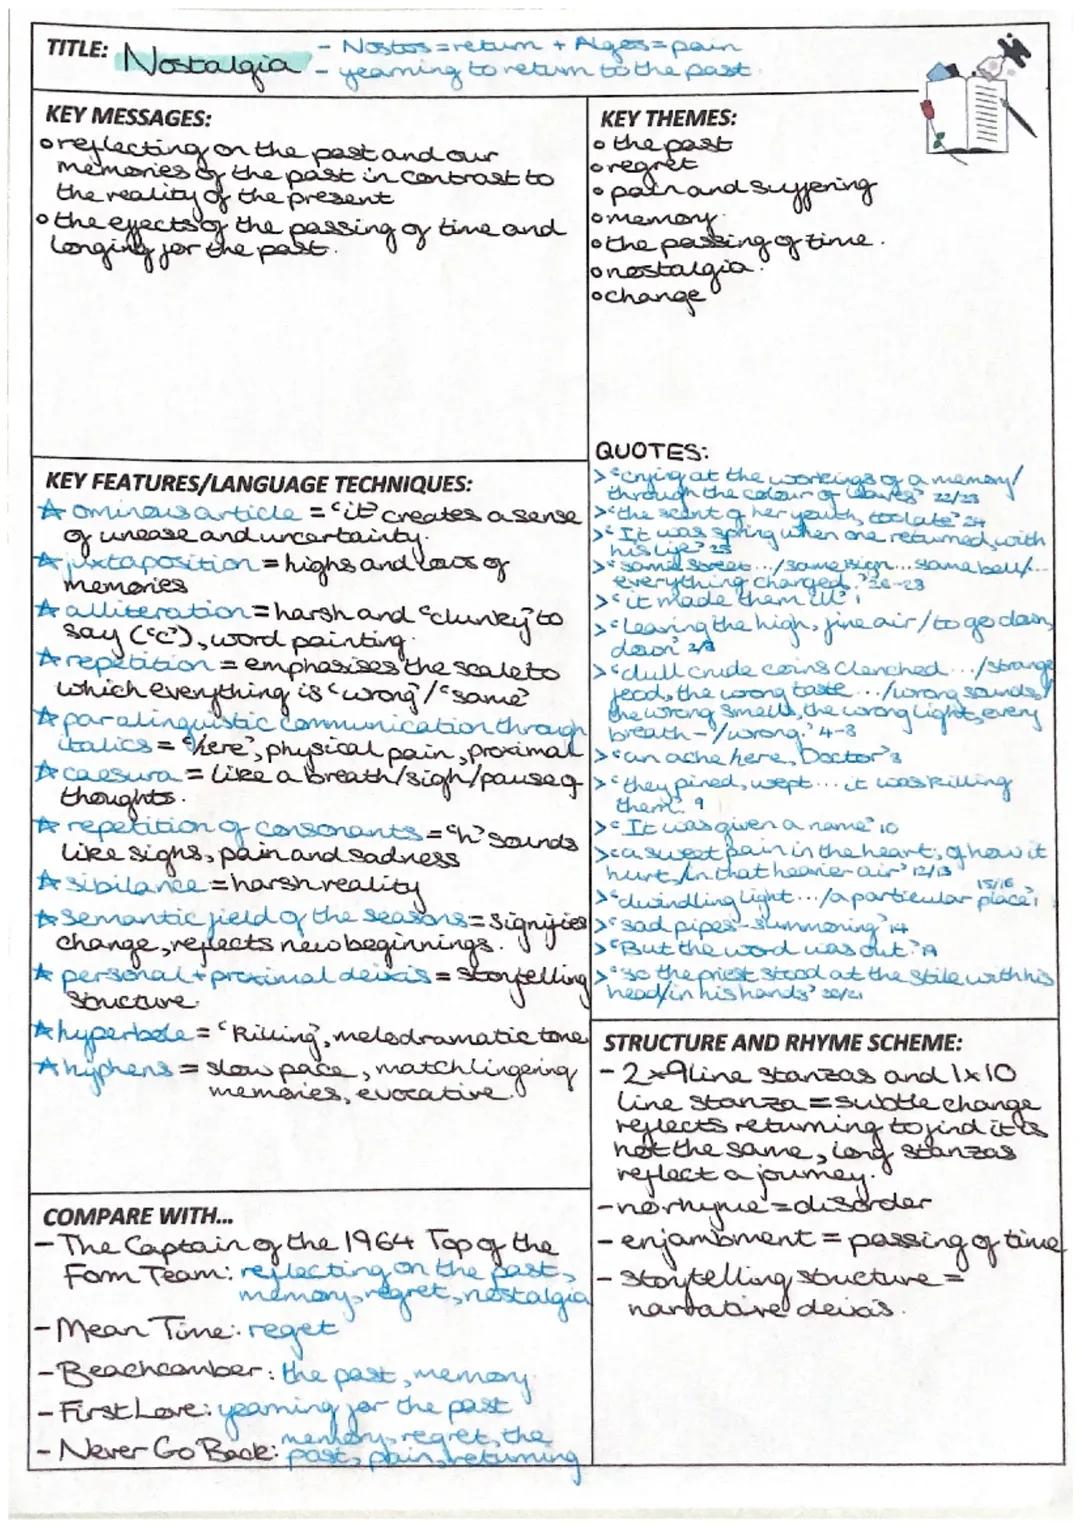 TITLE: Nostalgia
- Nostos=return + Algos=pain
- yearning to return to the past.
KEY MESSAGES:
o reflecting on the past and our
memories of the past in contrast to
the reality of the present
o the effects of the passing of time and
longing for the past.
KEY THEMES:
o the past
o regret
o pain and suffering
o memory.
o the passing of time.
o nostalgia.
o change
KEY FEATURES/LANGUAGE TECHNIQUES:
☆ ominous article = 'it' creates a sense
of unease and uncertainty.
☆ juxtaposition = highs and lows of
memories
☆ alliteration = harsh and "clunky" to
say ('c'), word painting.
☆ repetition = emphasises the scale to
which everything is 'wrong'/'same'
☆ paralinguistic communication through
italics = 'here', physical pain, proximal
☆ caesura = like a breath/sigh/pause of
thoughts.
☆ repetition of consonants = 'h' sounds
like sighs, pain and sadness
☆ sibilance = harsh reality
☆ semantic field of the seasons = signifies
change, reflects new beginnings.
☆ personal + proximal deixis = storytelling
structure.
☆ hyperbole = 'killing', melodramatic tone
☆ hyphens = slow pace, match lingering
memories, evocative.
QUOTES:
> 'crying at the workings of a memory/
through the colour of leaves' 22/23
> 'the scent of her youth, too late' 24
> 'It was spring when one returned, with
his life' 25
> 'same street.../same sign... same bell/...
everything changed.' 26-28
> 'it made them ill' 1
> 'leaving the high, fine air/to go down,
down' 2/3
> 'dull crude coins clenched.../strange
food, the wrong taste.../wrong sounds,/
the wrong smells, the wrong light, every
breath-/wrong.' 4-8
> 'an ache here, Doctor' 8
> 'they pined, wept... it was killing
them.' 9
> 'It was given a name' 10
> 'a sweet pain in the heart; of how it
hurt,/in that heavier air' 12/13
> 'dwindling light.../a particular place,' 15/16
> 'sad pipes-summoning' 14
> 'But the word was out.' 19
> 'so the priest stood at the stile with his
head/in his hands' 20/21
STRUCTURE AND RHYME SCHEME:
- 2x9 line stanzas and 1x10
line stanza = subtle change
reflects returning to find it is
not the same, long stanzas
reflect a journey.
- no rhyme = disorder
- enjambment = passing of time
- storytelling structure =
narrative deixis.
COMPARE WITH...
- The Captain of the 1964 Top of the
Form Team: reflecting on the past,
memory, regret, nostalgia
- Mean Time: reget
- Beachcomber: the past, memory
- First Love: yearning for the past
- Never Go Back: memory, regret, the
past, pain, returning